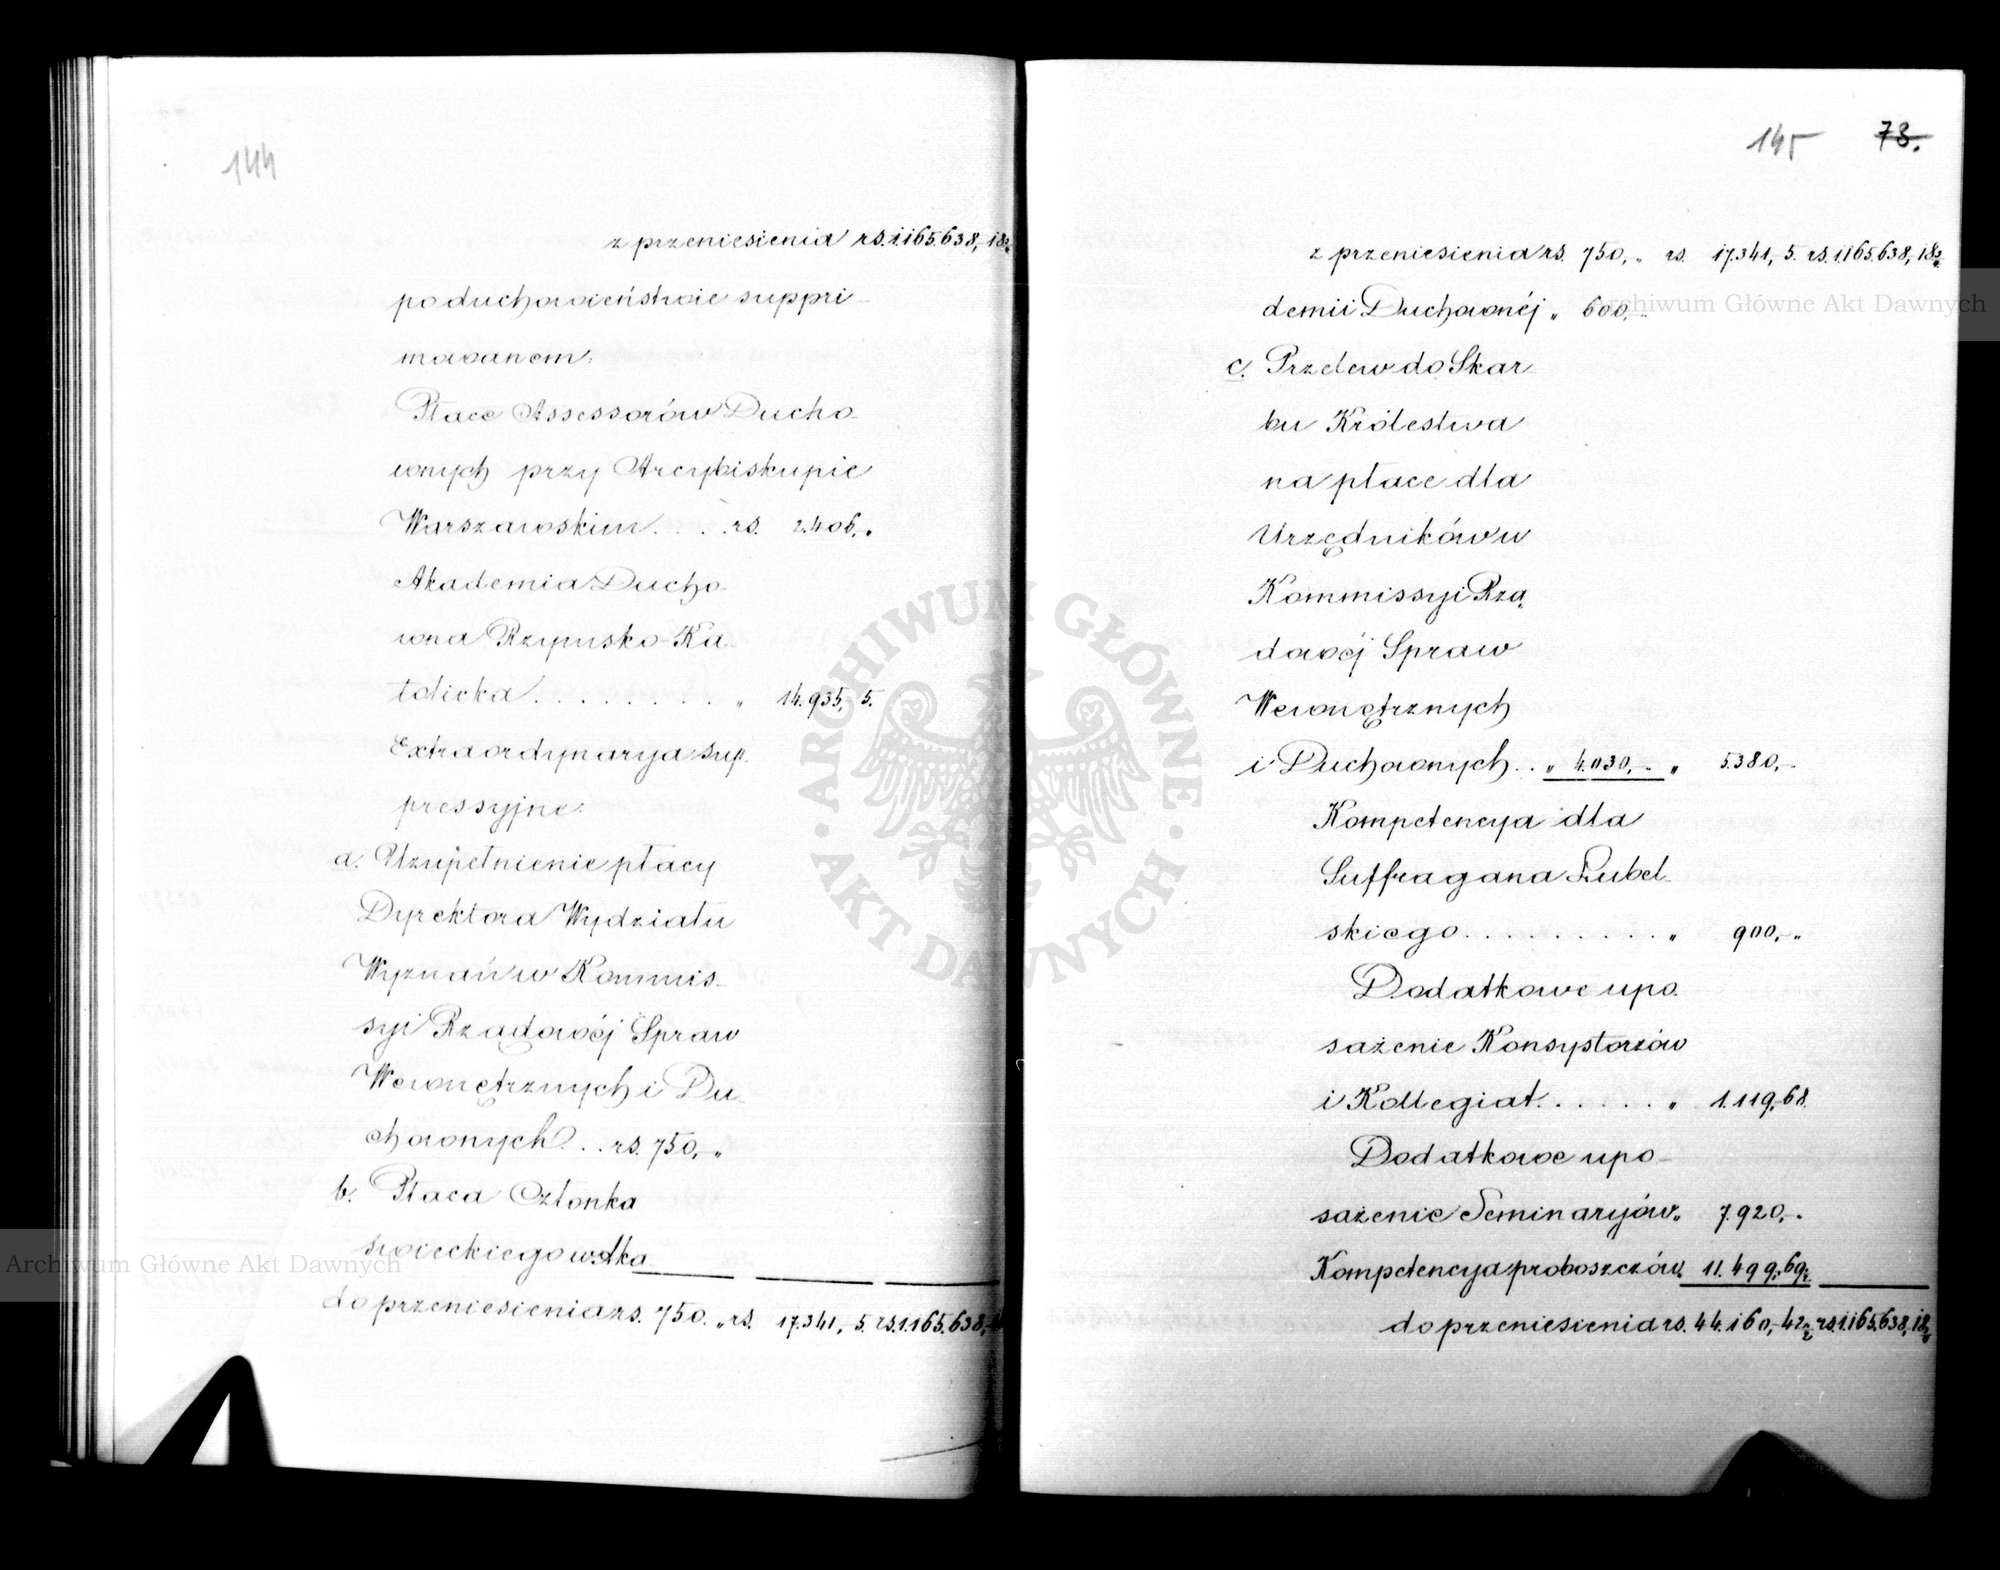 144
z przeniesienia rs. 1.165.638,-18½
po duchowieństwie suppri-
mowanem:
Płace Assessorów Ducho-
wnych przy Arcybiskupie
Warszawskim . . . . rs. 2.406,-"
Akademia Ducho-
wna Rzymsko-Ka-
tolicka . . . . . . . . " 14.935,- 5.
Extraordynarya sup-
pressyjne:
a. Uzupełnienie płacy
Dyrektora Wydziału
Wyznań w Kommis-
syi Rządowéj Spraw
Wewnętrznych i Du-
chownych . . rs. 750,-"
b. Płaca Członka
świeckiego w Aka-
do przeniesienia rs. 750. " rs. 17.341,- 5. rs. 1.165.638,-
145 73.
z przeniesienia rs. 750,-" rs. 17.341,- 5. rs. 1.165.638,-18½
demii Duchownéj " 600,-"
c. Przelew do Skar-
bu Królestwa
na płace dla
Urzędników w
Kommissyi Rzą-
dowéj Spraw
Wewnętrznych
i Duchownych . . " 4.030,-. " 5.380,-
Kompetencya dla
Suffragana Lubel-
skiego . . . . . . . . . . " 900,-"
Dodatkowe upo-
sażenie Konsystorzów
i Kollegiat . . . . . . " 1.119,-68
Dodatkowe upo-
sażenie Seminaryów " 7.920,-.
Kompetencya proboszczów " 11.499,-69½
do przeniesienia rs. 44.160,-42½ rs. 1.165.638,-18½
ARCHIWUM GŁÓWNE AKT DAWNYCH
Archiwum Główne Akt Dawnych
Archiwum Główne Akt Dawnych